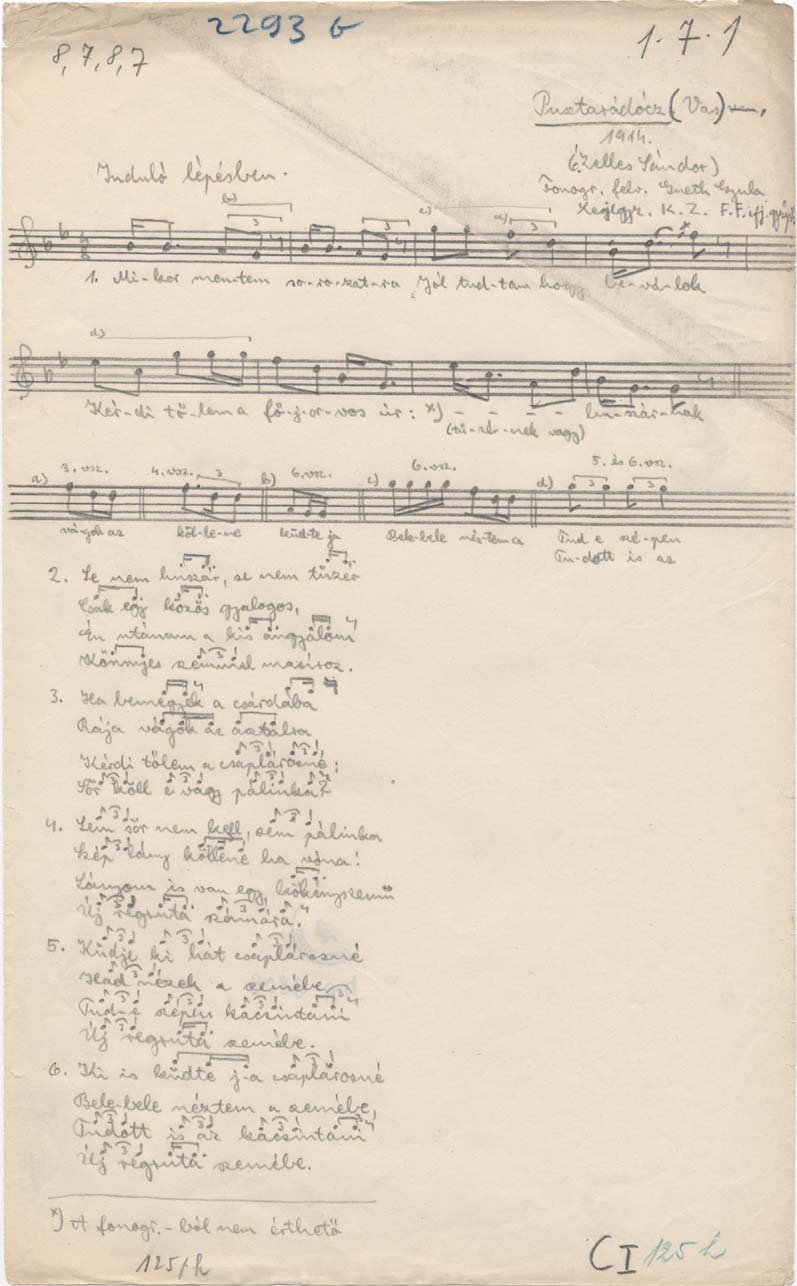 2293 b
1.7.1
8,7,8,7
Pusztarádócz (Vas)
1914.
(Zelles Sándor)
Induló lépésben.
Fonogr. felv. Gneth Gyula
Lejegyz. K. Z. F.F. ifj. gyűjt.
b) c) a)
3 3 3
1. Mi-kor men-tem so-ro-zat-ra Jól tud-tam hogy be-vá-lok
d)
Kér-di tő-lem a fő-j-or-vos úr: x) - - - - hu-szár-nak
(tü-zér-nek vagy)
a) 3. vsz. 4. vsz. 3 b) 6. vsz. c) 6. vsz. d) 5. és 6. vsz. 3 3
vá-gok az köl-le-ne küd-te ja Bele-bele néz-tem a Tud e szé-pen
Tu-dott is az
2. Se nem huszár, se nem tüzér
Csak egy közös gyalogos,
Én utánam a kis angyalom
Könnyes szemmel masíroz.
3. Ha bemegyek a csárdába
Rája vágok az asztalra
Kérdi tőlem a csaplárosné:
Sör köll e vagy pálinka?
4. Sem sör nem kell, sem pálinka
Szép lány köllene ha vóna!
Lányom is van egy, kökényszemű
Új regruta számára.
5. Küdje ki hát csaplárosné
Had nézek a szemébe
Tud-e szépen kacsintani
Új regruta szemébe.
6. Ki is küdte j-a csaplárosné
Bele-bele néztem a szemébe,
Tudott is az kacsintani
Új regruta szemébe.
x) A fonogr.-ból nem érthető
125/h
CI 125 h